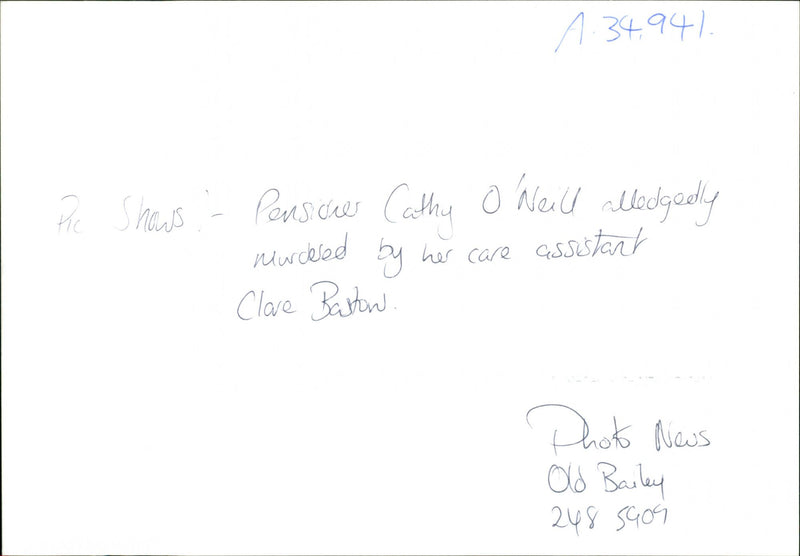 A.34,941.
Pic Shows:- Pensioner Cathy O'Neill alledgedly
murdered by her care assistant
Clare Bastow.
Photo News
Old Bailey
248 5909